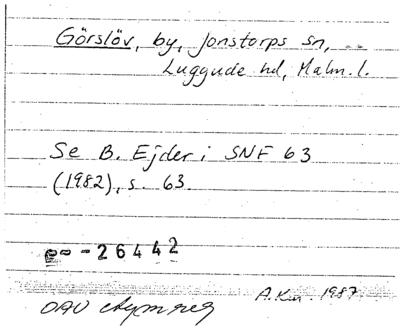 Görslöv, by, Jonstorps sn,
Luggude hd, Malm. l.
Se B. Ejder i SNF 63
(1982), s. 63.
26442
A.K. 1987
OAU